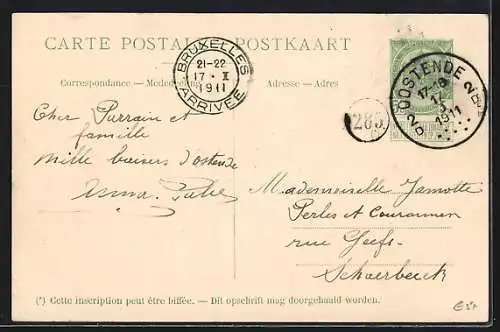 CARTE POSTALE POSTKAART
Correspondance — Mededeelingen
Adresse — Adres
BRUXELLES
21-22
17 · X
1911
ARRIVÉE
OOSTENDE 2
17-18
1911
285
Cher Parrain et
famille
mille baisers d'ostende
Mademoiselle Jamotte
Perles et Couronnes
rue Geefs
Schaerbeeck
(*) Cette inscription peut être biffée. — Dit opschrift mag doorgehaald worden.